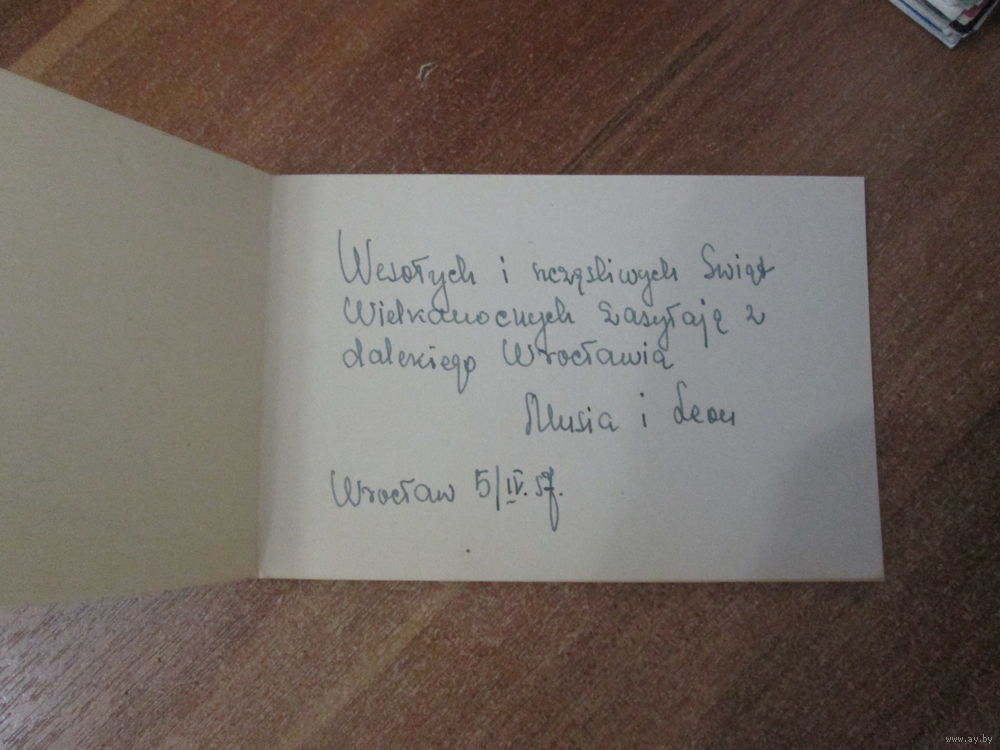 Wesołych i szczęsliwych Swiąt
Wielkanocnych zasyłają z
dalekiego Wrocławia
Musia i Leon
Wrocław 5/IV.57.
www.ay.by